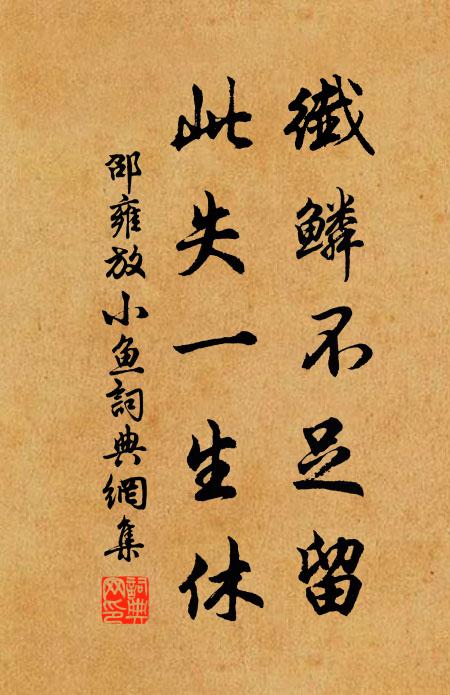 纖鱗不足留
此失一生休
邵雍放小魚詞典網集
詞典網印